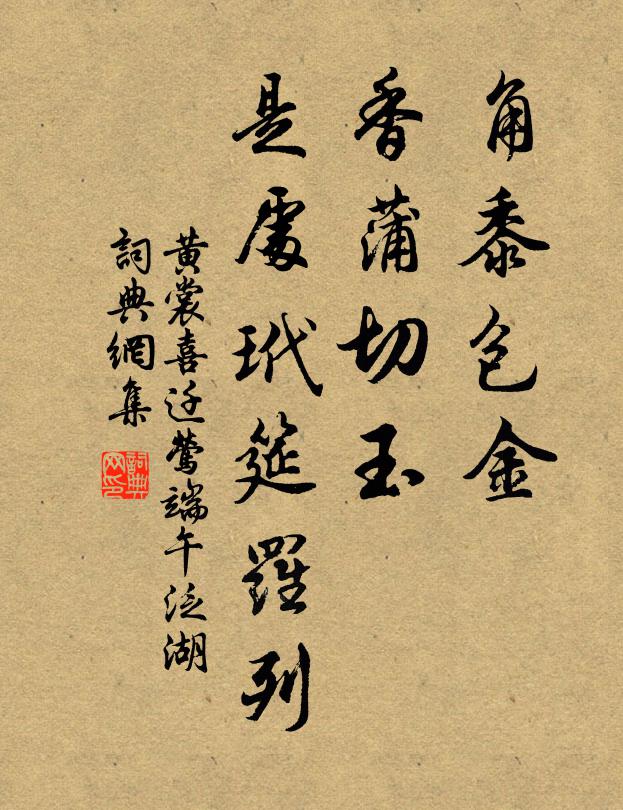 角黍包金
香蒲切玉
是處玳筵羅列
黄裳喜迁鶯端午泛湖
詞典網集
詞典网印